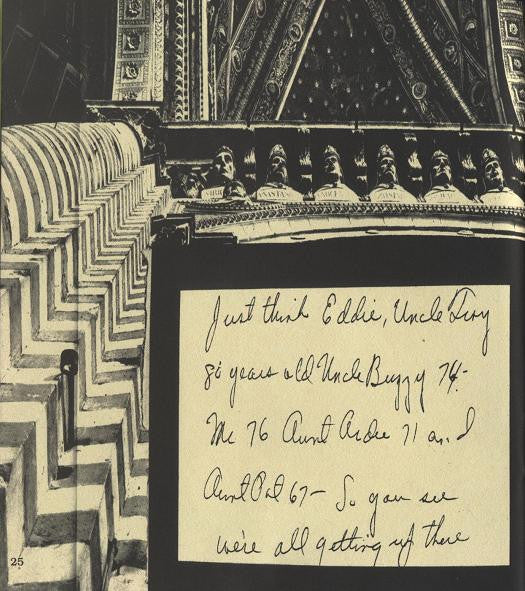 Just think Eddie, Uncle Troy
80 years old Uncle Buzzy 74-
Me 76 Aunt Ardie 71 and
Aunt Pat 67- So you see
we're all getting up there
25